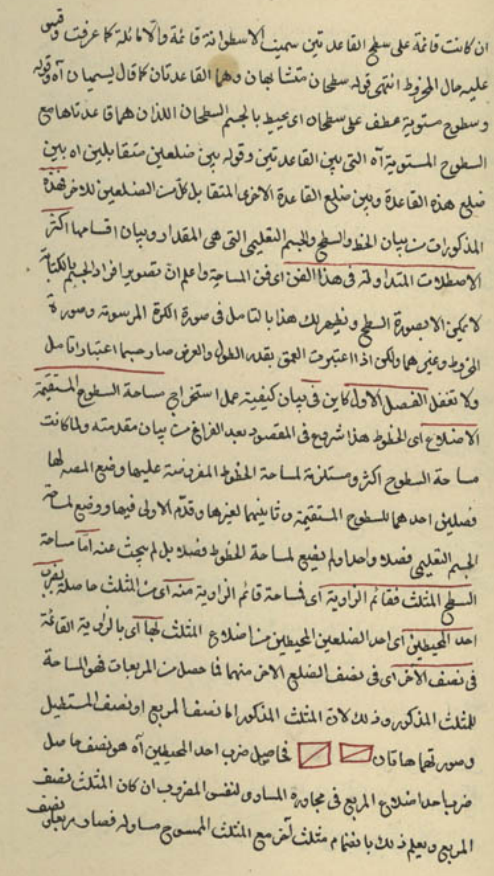 ان كانت قائمة على سطح القاعدتين سميت الاسطوانة قائمة والا مائلة كما عرفت وقس
عليه حال المخروط انتهى قوله سطحان متشابهان وهما القاعدتان كما قال يسميان آه وقوله
وسطوح مستوية عطف على سطحان اى يحيط بالجسم السطحان اللذان هما قاعدتاها مع
السطوح المستوية آه التى بين القاعدتين وقوله بين ضلعين متقابلين اه بين
ضلع هذه القاعدة وبين ضلع القاعدة الاخرى المتقابل كل من الضلعين للاخر فهذه
المذكورات من بيان الخط والسطح والجسم التعليمى التى هى المقدار وبيان اقسامها اكثر
الاصطلات المتداولة فى هذا الفن اى فن المساحة واعلم ان تصوير افراد الجسم بالكتابة
لا يمكن الا بصورة السطح ويظهر لك هذا بالتامل فى صورة الكرة المرسومة وصورة
المخروط وغيرهما ولكن اذا اعتبرت العمق بقدر الطول والعرض صار جسما اعتبارا تامل
ولا تغفل الفصل الاول كاين فى بيان كيفية عمل استخراج مساحة السطوح المستقيمة
الاضلاع اى الخطوط هذا شروع فى المقصود بعد الفراغ من بيان مقدمته ولما كانت
مساحة السطوح اكثر ومستلزمة لمساحة الخطوط المفروضة عليها وضع المصـ لها
فصلين احدهما للسطوح المستقيمة وثانيهما لغيرها وقدّم الاولى فيها ووضع لمساحة
الجسم التعليمى فصلا واحدا ولم يضع لمساحة الخطوط فصلا بل لم يبحث عنه اما مساحة
السطح المثلث فقائم الزاوية اى فمساحة قائم الزاوية منه اى من المثلث حاصلة بضرب
احد المحيطين اى احد الضلعين المحيطين من اضلاع المثلث بها اى بالزاوية القائمة
فى نصف الاخر اى فى نصف الضلع الاخر منهما فما حصل من المربعات فهو المساحة
للمثلث المذكور وذلك لان المثلث المذكور اما نصف المربع او نصف المستطيل
وصورتهما هاتان فحاصل ضرب احد المحيطين آه هو نصف حاصل
ضرب احد اضلاع المربع فى مجاورة المساوى لنفس المضروب ان كان المثلث نصف
المربع ويعلم ذلك بانضمام مثلث آخر مع المثلث الممسوح مساو له فصار مربعا نصف